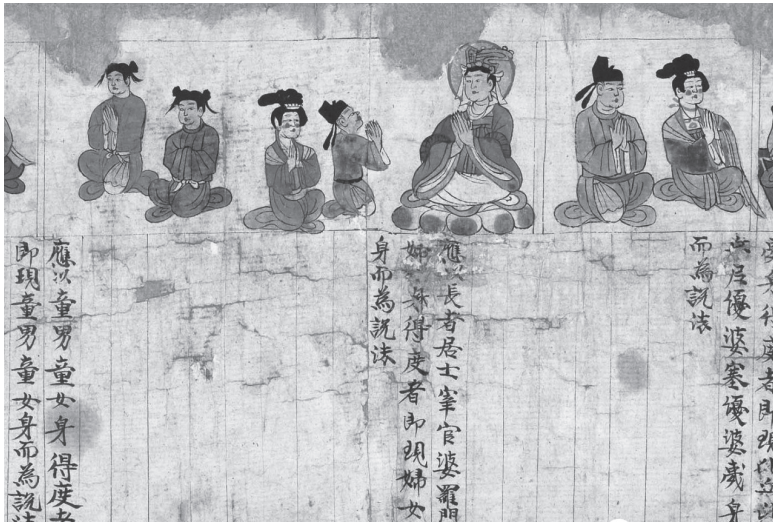 得度者即現比丘比
丘尼優婆塞優婆夷身
而為説法
應以長者居士宰官婆羅門
婦女身得度者即現婦女
身而為説法
應以童男童女身得度者
即現童男童女身而為説法